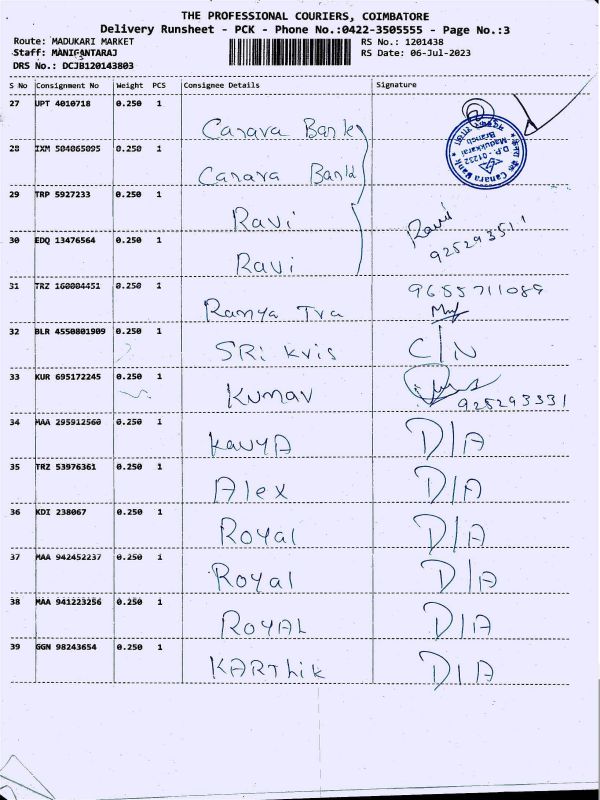 THE PROFESSIONAL COURIERS, COIMBATORE
Delivery Runsheet - PCK - Phone No.:0422-3505555 - Page No.:3
Route: MADUKARI MARKET RS No.: 1201438
Staff: MANIGANTARAJ RS Date: 06-Jul-2023
DRS No.: DCJB120143803
S No Consignment No Weight PCS Consignee Details Signature
27 UPT 4010718 0.250 1 Canara Bank
28 IXM 504065095 0.250 1 Canara Bank
29 TRP 5927233 0.250 1 Ravi
30 EDQ 13476564 0.250 1 Ravi Ravi
925293511
31 TRZ 160004451 0.250 1 Ramya Tra 9655711089
32 BLR 4550801909 0.250 1 SRi kris C/N
33 KUR 695172245 0.250 1 Kumar 925293331
34 MAA 295912560 0.250 1 KavyA D/A
35 TRZ 53976361 0.250 1 Alex D/A
36 KDI 238067 0.250 1 Royal D/A
37 MAA 942452237 0.250 1 Royal D/A
38 MAA 941223256 0.250 1 RoyAL D/A
39 GGN 98243654 0.250 1 KARThik D/A
Canara Bank
D.P. - 01232
Madukkarai
Branch